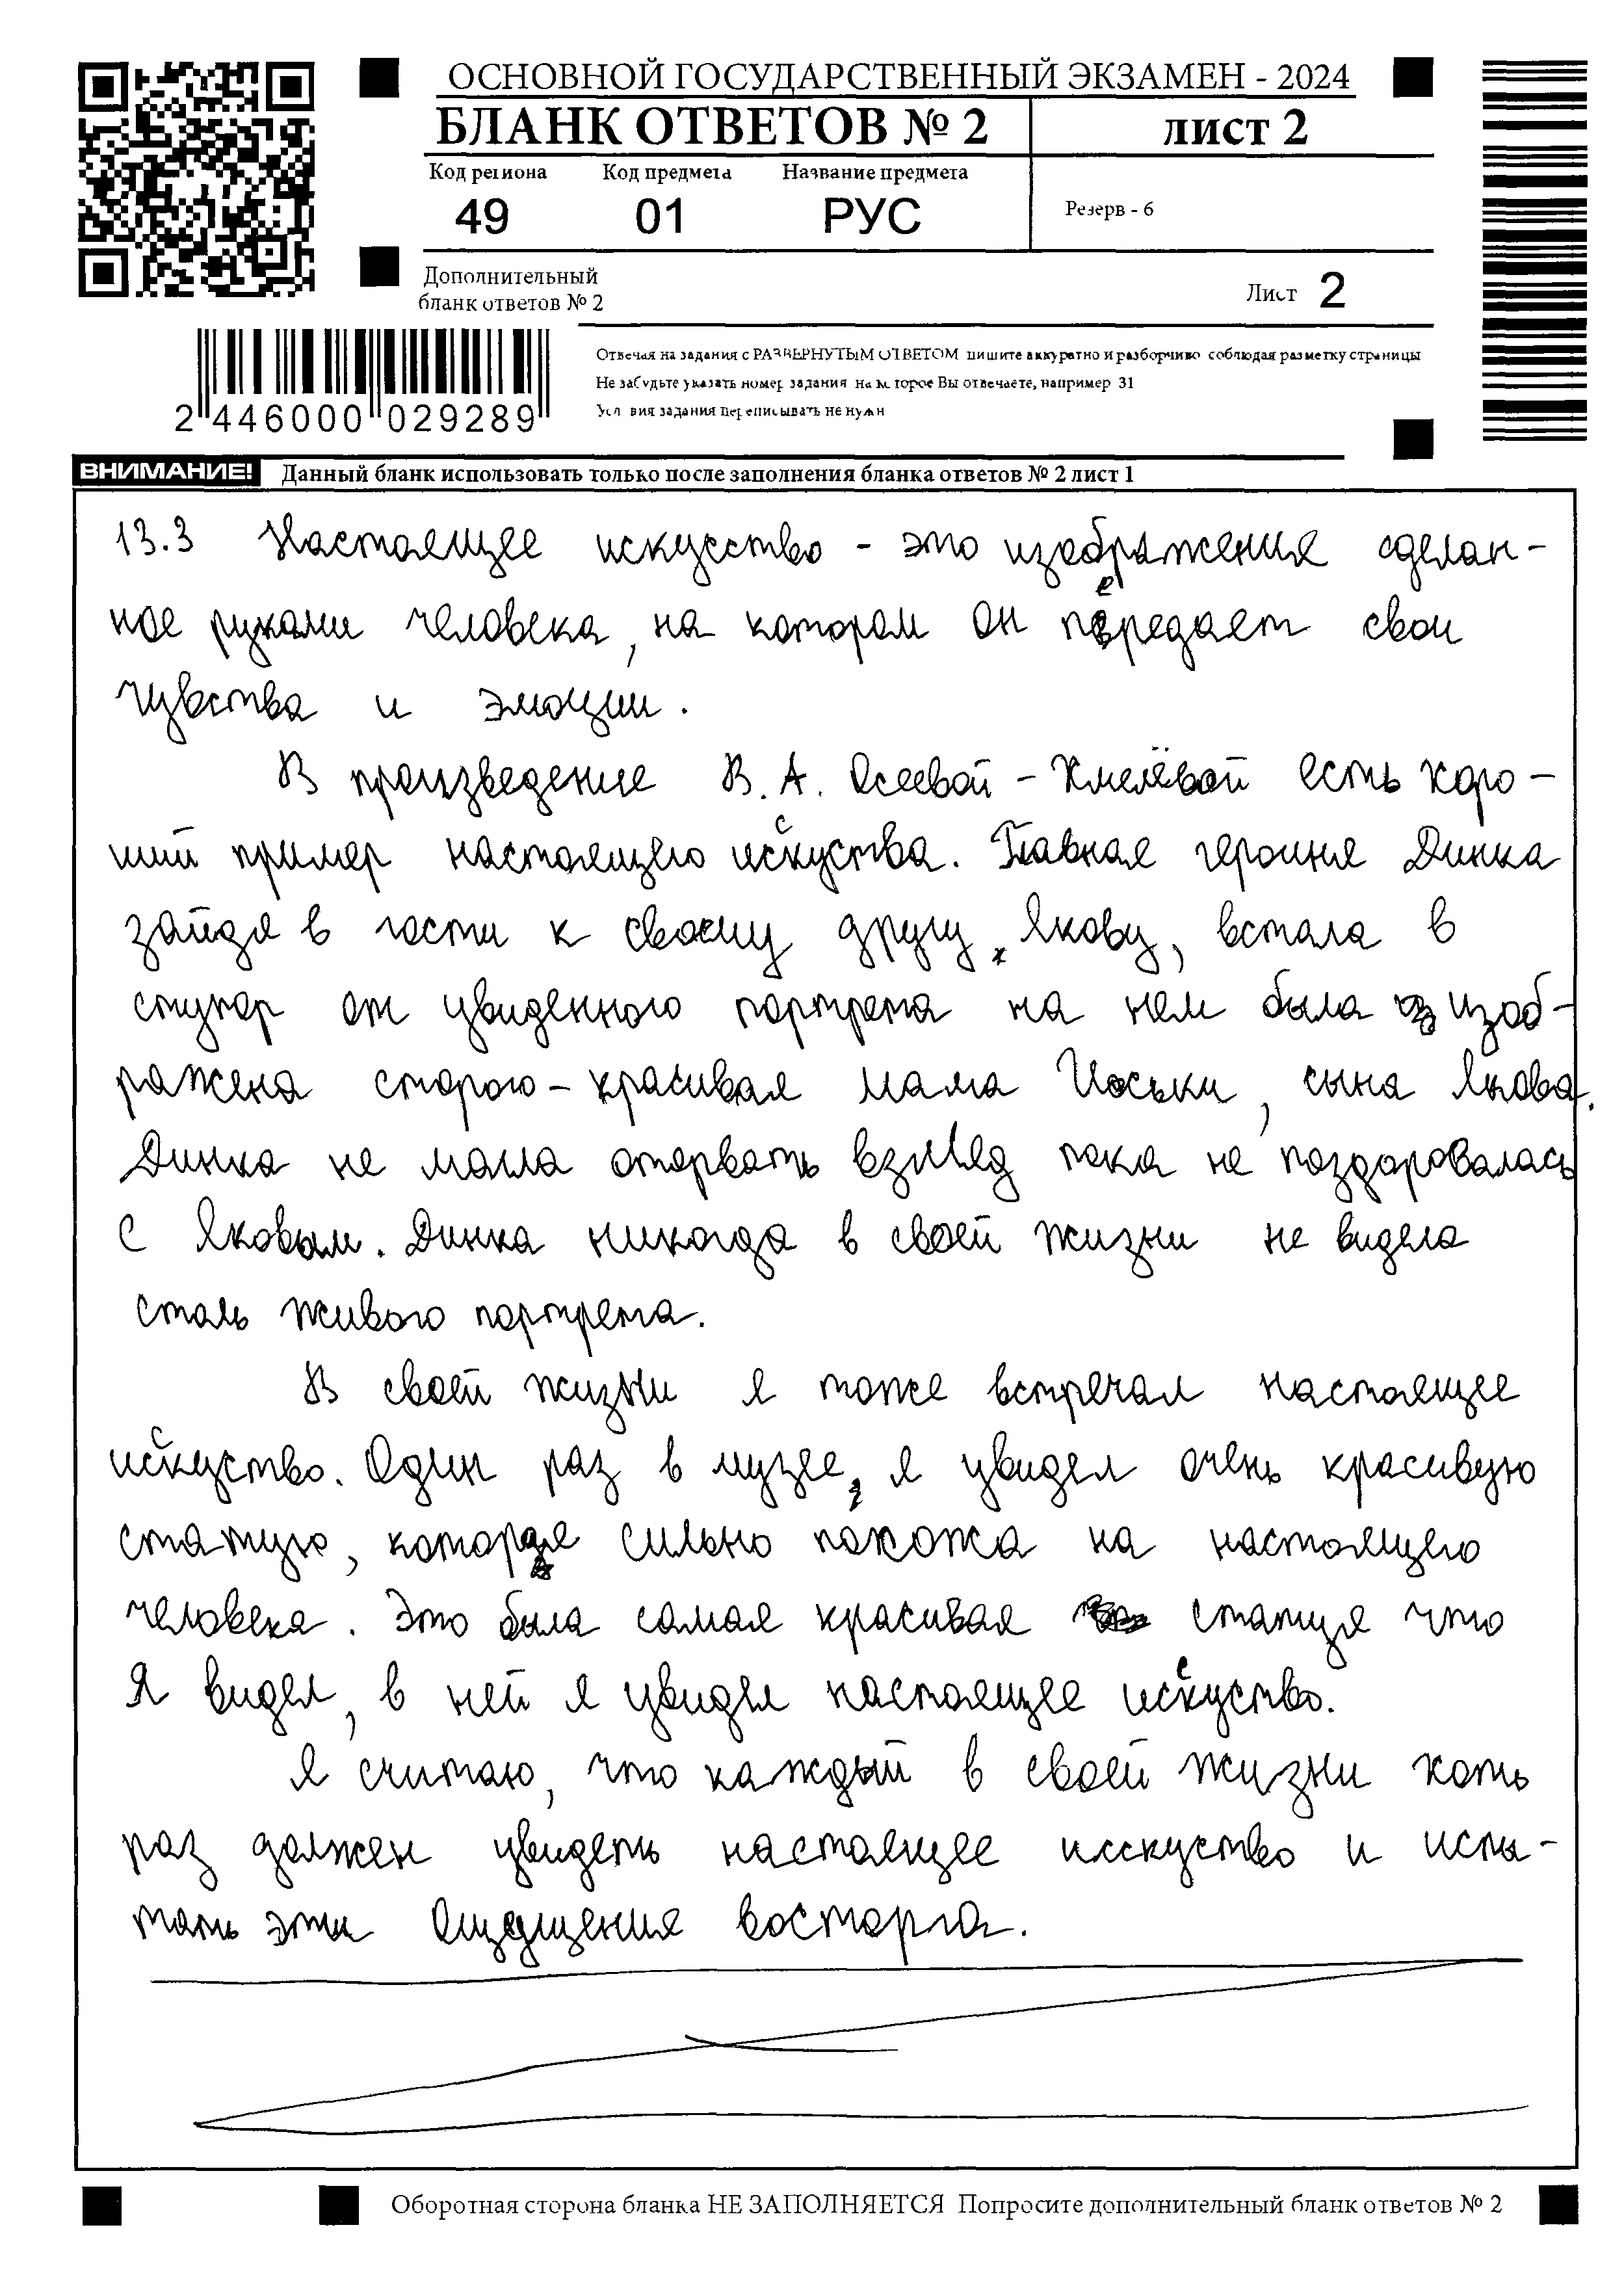 ОСНОВНОЙ ГОСУДАРСТВЕННЫЙ ЭКЗАМЕН - 2024
БЛАНК ОТВЕТОВ № 2
лист 2
Код региона Код предмета Название предмета
49 01 РУС
Резерв - 6
Дополнительный
бланк ответов № 2
Лист 2
Отвечая на задания с РАЗВЕРНУТЫМ ОТВЕТОМ пишите аккуратно и разборчиво соблюдая разметку страницы
Не забудьте указать номер задания на которое Вы отвечаете, например 31
Условия задания переписывать не нужн
2 446000 029289
ВНИМАНИЕ! Данный бланк использовать только после заполнения бланка ответов № 2 лист 1
13.3 Настоящее искусство - это изображения сделан-
ное руками человека, на котором он передает свои
чувства и эмоции.
В произведение В. А. Осеевой - Хмелёвой есть хоро-
ший пример настоящего исскуства. Главная героиня Динка
зайдя в гости к своему другу Якову, встала в
ступор от увиденного портрета на нем была изоб-
ражена старою - красивая мама Иоськи, сына Якова.
Динка не могла оторвать взгляд пока не поздоровалась
с Яковом. Динка никогда в своей жизни не видела
столь живого портрета.
В своей жизни я тоже встречал настоящее
исскуство. Один раз в музее, я увидел очень красивую
статую, которая сильно похожа на настоящего
человека. Это была самая красивая статуя что
я видел, в ней я увидел настоящее исскуство.
Я считаю, что каждый в своей жизни хоть
раз должен увидеть настоящее исскуство и испы-
тать эти ощущения восторга.
Оборотная сторона бланка НЕ ЗАПОЛНЯЕТСЯ Попросите дополнительный бланк ответов № 2